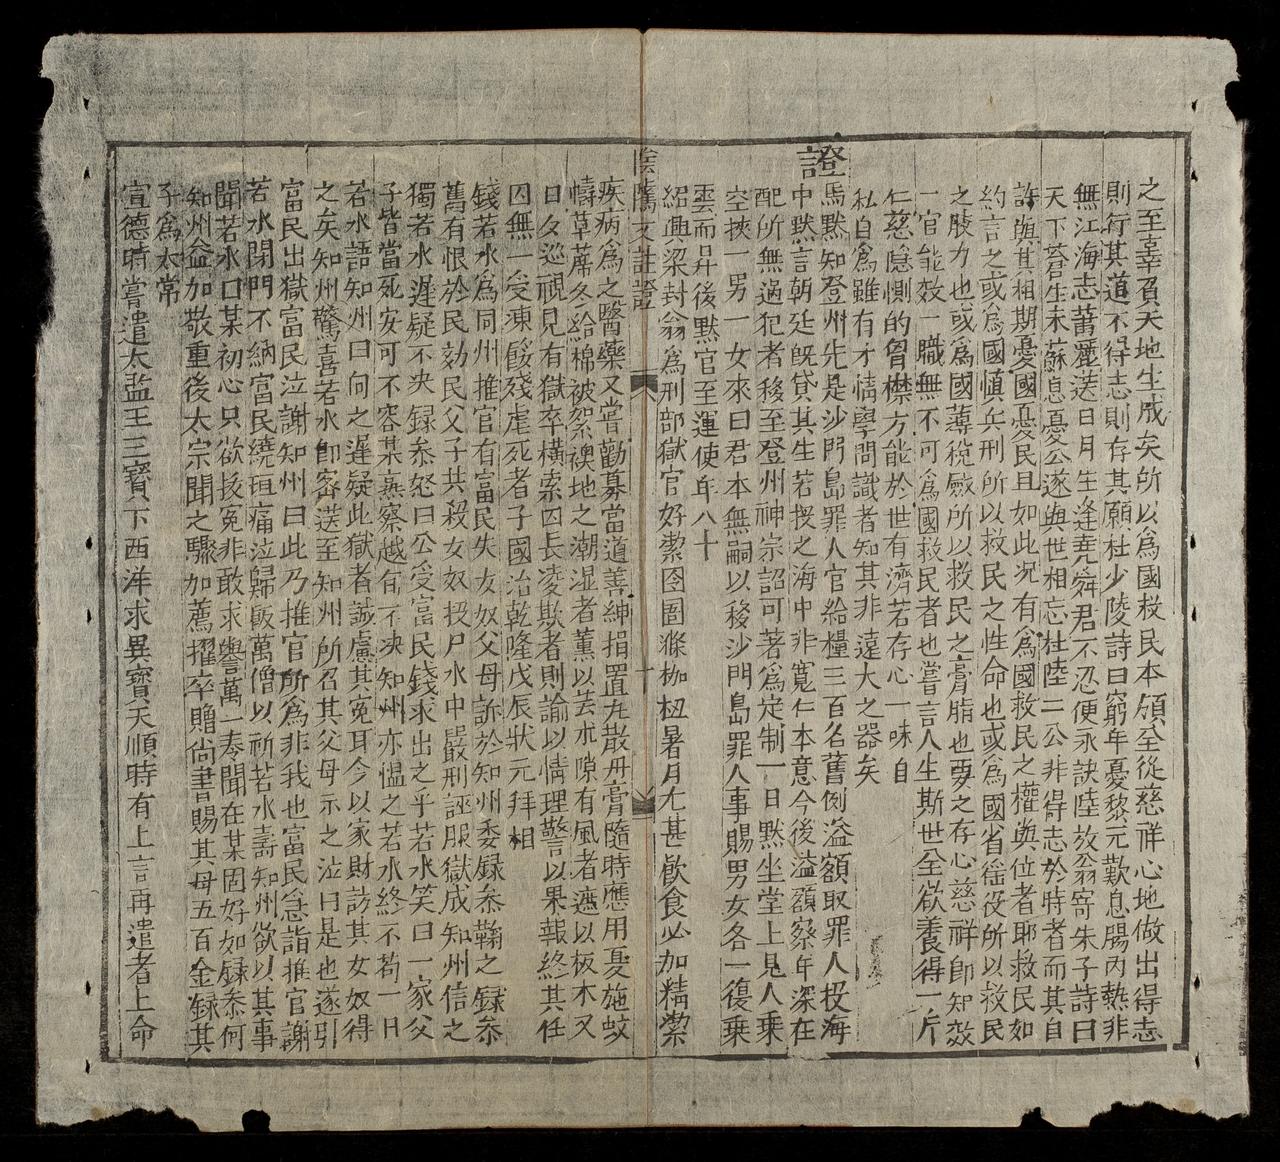 之至辜負天地生成矣所以為國救民本願全從慈祥心地做出得志
則行其道不得志則存其願杜少陵詩曰窮年憂黎元歎息腸內熱非
無江海志蕭灑送日月生逢堯舜君不忍便永訣陸放翁寄朱子詩曰
天下蒼生未蘇息憂公遂與世相忘杜陸二公非得志於時者而其自
許與其相期憂國憂民且如此况有為國救民之權與位者耶救民如
約言之或為國慎兵刑所以救民之性命也或為國省徭役所以救民
之肢力也或為國薄稅斂所以救民之膏脂也要之存心慈祥即知效
一官能效一職無不可為國救民者也嘗言人生斯世全欲養得一片
仁慈隱惻的胷襟方能於世有濟若存心一味自
私自為雖有才情學問識者知其非遠大之器矣
證
馬默知登州先是沙門島罪人官給糧三百名舊例溢額取罪人投海
中默言朝廷既貸其生若投之海中非寬仁本意今後溢額察年深在
配所無過犯者移至登州神宗詔可著為定制一日默坐堂上見人乘
空挾一男一女來曰君本無嗣以移沙門島罪人事賜男女各一復乘
雲而昇後默官至運使年八十
紹興梁封翁為刑部獄官好潔囹圄滌枷杻暑月尤甚飲食必加精潔
陰隲文註證
十
疾病為之醫藥又嘗勸募當道善紳捐置丸散丹膏隨時應用憂施蚊
幬草蓆冬給棉被絮襖地之潮濕者薰以蒼朮隙有風者遮以板木又
日夕巡視見有獄卒橫索囚長凌欺者則諭以情理警以果報終其任
囚無一受凍餒殘虐死者子國治乾隆戊辰狀元拜相
錢若水為同州推官有富民失女奴父母訴於知州委録叅鞫之録叅
舊有恨於民劾民父子共殺女奴投尸水中嚴刑誣服獄成知州信之
獨若水遲疑不決録叅怒曰公受富民錢求出之乎若水笑曰一家父
子皆當死安可不容某熟察越旬不決知州亦慍之若水終不苟一日
若水語知州曰向之遲疑此獄者誠慮其冤耳今以家財訪其女奴得
之矣知州驚喜若水即密送至知州所召其父母示之泣曰是也遂引
富民出獄富民泣謝知州曰此乃推官所為非我也富民急詣推官謝
若水閉門不納富民繞垣痛泣歸飯萬僧以祈若水壽知州欲以其事
聞若水曰某初心只欲拔冤非敢求譽萬一奏聞在某固好如録叅何
知州益加敬重後太宗聞之驟加薦擢卒贈尚書賜其母五百金録其
子為太常
宣德時嘗遣太監王三寳下西洋求異寳天順時有上言再遣者上命